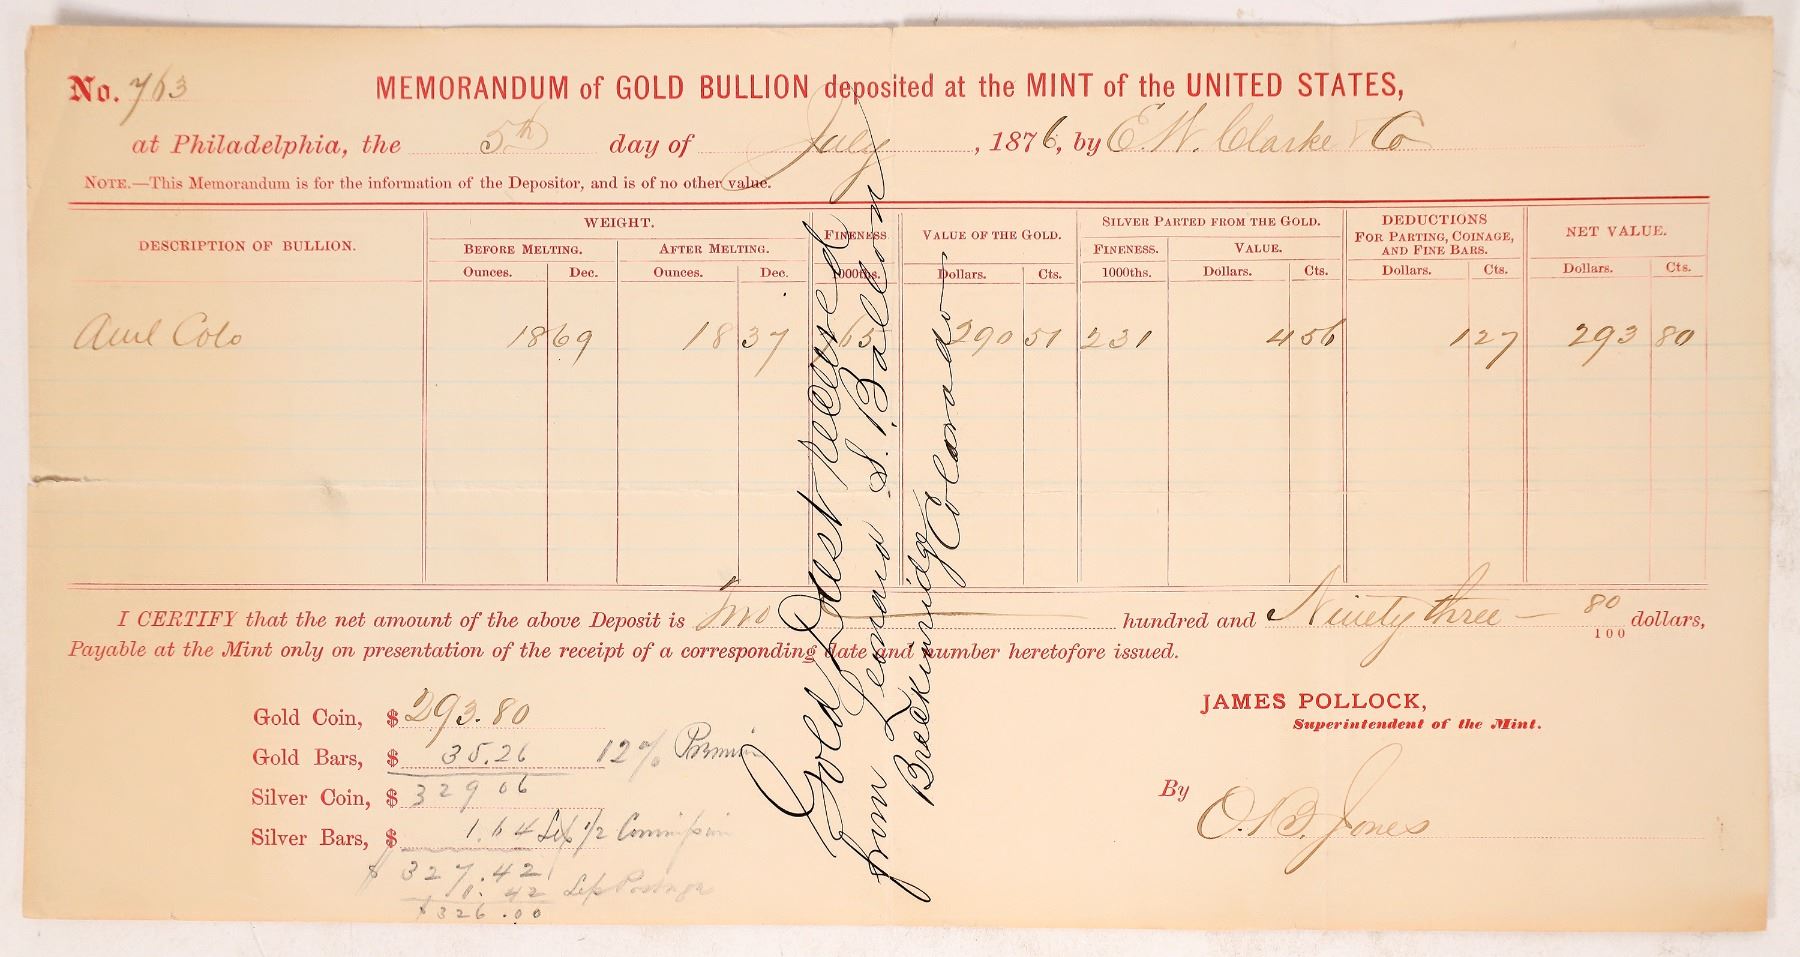 No. 763 MEMORANDUM of GOLD BULLION deposited at the MINT of the UNITED STATES,
at Philadelphia, the 5th day of July, 1876, by E. W. Clarke & Co
NOTE.—This Memorandum is for the information of the Depositor, and is of no other value.
DESCRIPTION OF BULLION. WEIGHT. FINENESS VALUE OF THE GOLD. SILVER PARTED FROM THE GOLD. DEDUCTIONS FOR PARTING, COINAGE, AND FINE BARS. NET VALUE.
BEFORE MELTING. AFTER MELTING. FINENESS. VALUE.
Ounces. Dec. Ounces. Dec. 1000ths. Dollars. Cts. 1000ths. Dollars. Cts. Dollars. Cts. Dollars. Cts.
Colo 18 69 18 37 290 51 231 4 56 1 27 293 80
I CERTIFY that the net amount of the above Deposit is Two hundred and Ninety three — 80/100 dollars,
Payable at the Mint only on presentation of the receipt of a corresponding date and number heretofore issued.
Gold Coin, $ 293.80
Gold Bars, $ 35.26 12%
Silver Coin, $ 329 06
Silver Bars, $ 1.64 Less 1/2 Commission
$ 327.42
1.42 Less Postage
$ 326.00
JAMES POLLOCK,
Superintendent of the Mint.
By O. B. Jones
Gold Dust received
from Leonard S. Ballou
Breckinridge Colorado